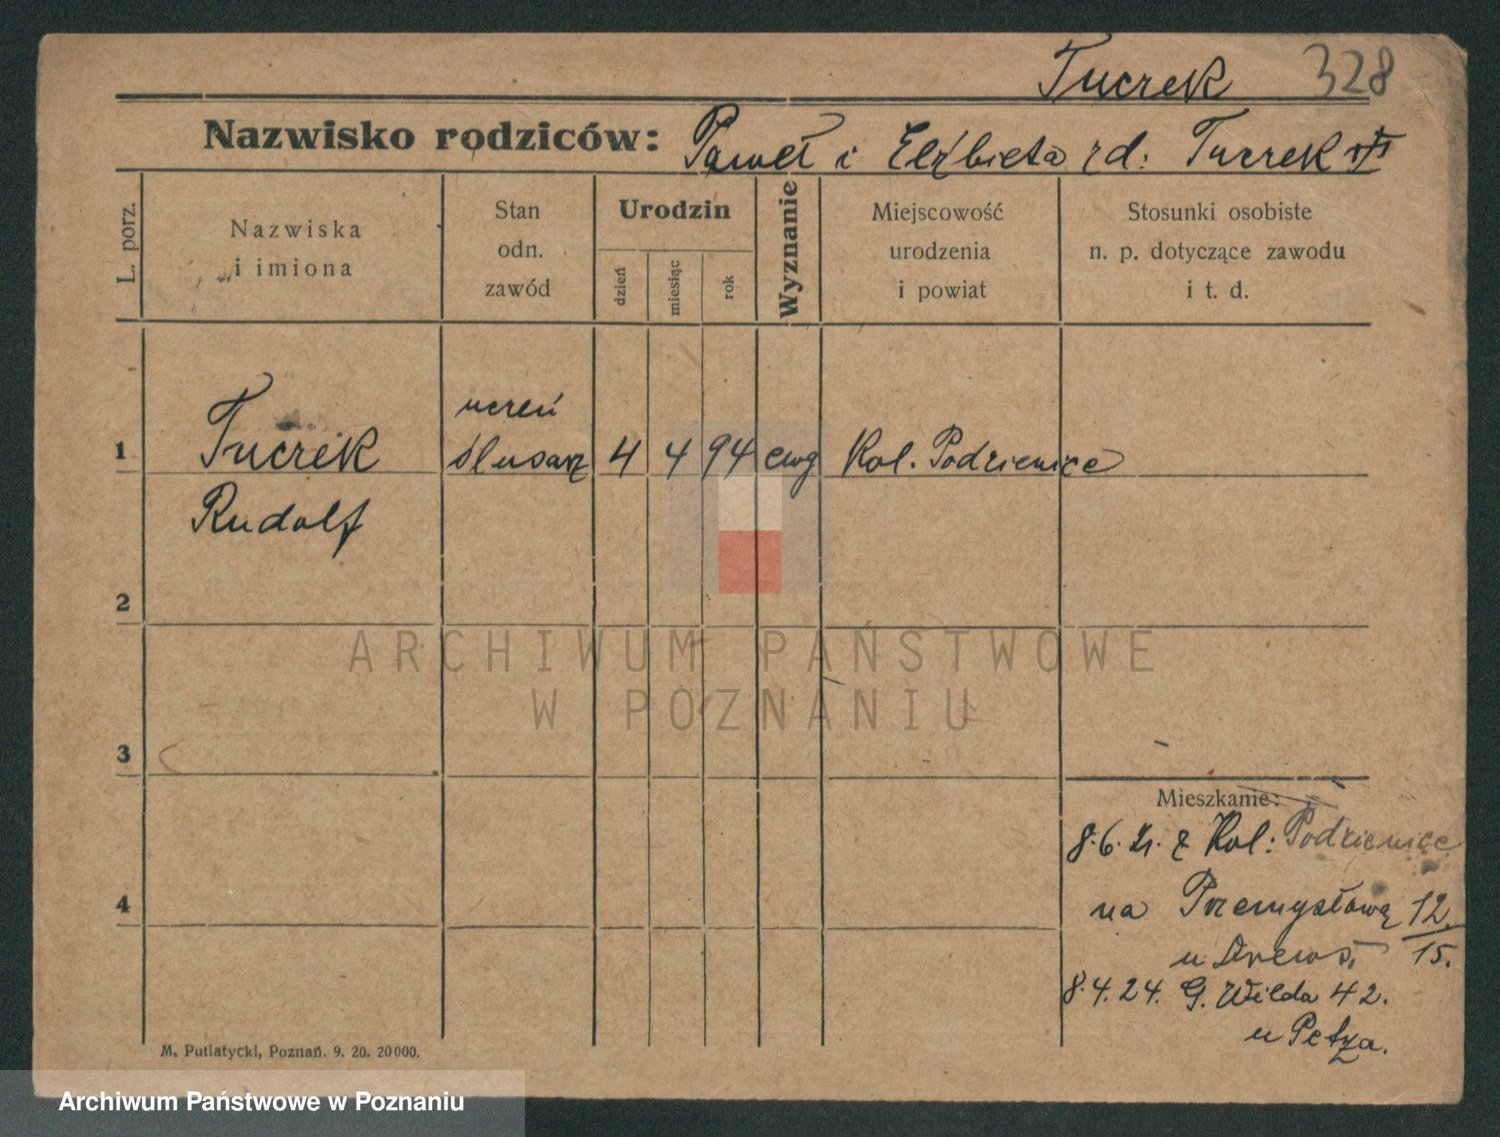 Tucrek 328
Nazwisko rodziców: Paweł i Elżbieta rd: Tucrek
L. porz.
Nazwiska
i imiona
Stan
odn.
zawód
Urodzin
dzień
miesiąc
rok
Wyznanie
Miejscowość
urodzenia
i powiat
Stosunki osobiste
n. p. dotyczące zawodu
i t. d.
uczeń
1 Tucrek ślusarz 4 4 94 ewg Kol. Podzienice
Rudolf
2
ARCHIWUM PAŃSTWOWE
W POZNANIU
3
Mieszkanie:
8.6. 21. z Kol: Podzienice
na Przemysłową 12/15.
4
u Drews.
8.4.24. G. Wilda 42.
u Petza.
M. Putiatycki, Poznań. 9. 20. 20000.
Archiwum Państwowe w Poznaniu